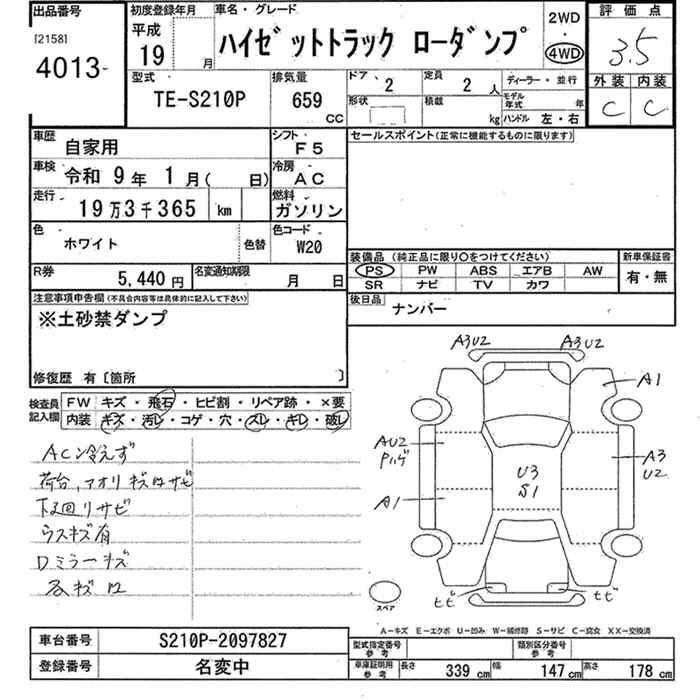 出品番号
[2158]
4013-
初度登録年月
平成
19 月
車名・グレード
ハイゼットトラック ローダンプ
2WD
・
4WD
評価点
3.5
型式
TE-S210P
排気量
659
CC
ドア
2
定員
2 人
ディーラー・並行
形状
積載
kg
モデル年式 年
ハンドル 左・右
外装 内装
C C
車歴
自家用
シフト
F5
車検
令和 9年 1月( 日)
冷房
AC
走行
19万3千365 km
燃料
ガソリン
色
ホワイト
色替
色コード
W20
R券
5,440円
名変通知期限
月 日
セールスポイント(正常に機能するものに限ります)
装備品 (純正品に限り〇をつけてください)
新車保証書
PS PW ABS エアB AW
SR ナビ TV カワ
有・無
後日品
ナンバー
注意事項申告欄(不具合内容等は具体的に記入して下さい)
※土砂禁ダンプ
修復歴 有〔箇所 〕
検査員記入欄
FW キズ・飛石・ヒビ割・リペア跡・×要
内装 キズ・汚レ・コゲ・穴・スレ・キレ・破レ
AC冷えず
荷台、アオリ キズ サビ
下回リサビ
ウスキズ有
Dミラーキズ
A3U2 A3U2
A1
AU2
Pハゲ
A3
U2
U3
S1
A1
ヒビ ヒビ
スペア
A-キズ E-エクボ U-凹み W-補修跡 S-サビ C-腐食 XX-交換済
車台番号
S210P-2097827
登録番号
名変中
型式指定番号
参考
類別区分番号
参考
車庫証明用
参考
長さ 339 cm
幅 147 cm
高さ 178 cm